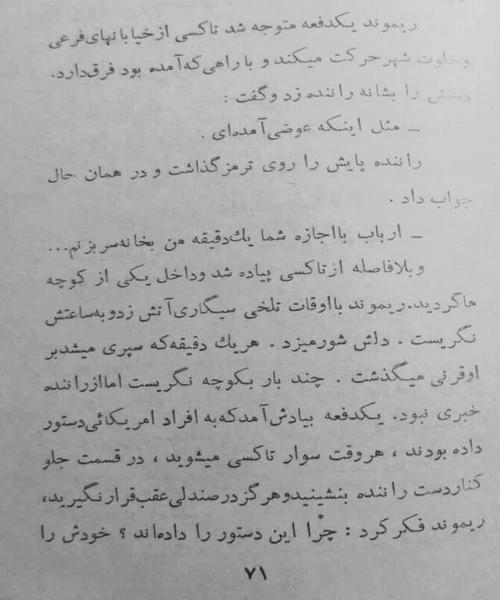 ریموند یکدفعه متوجه شد تاکسی از خیابانهای فرعی
وخلوت شهر حرکت میکند و با راهی که آمده بود فرق دارد.
دستش را بشانه راننده زد وگفت :
ـ مثل اینکه عوضی آمده‌ای .
راننده پایش را روی ترمز گذاشت و در همان حال
جواب داد .
ـ ارباب با اجازه شما یك دقیقه من بخانه سر بزنم...
وبلافاصله از تاکسی پیاده شد وداخل یکی از کوچه
هاگردید. ریموند با اوقات تلخی سیگاری آتش زد و به ساعتش
نگریست . دلش شور میزد . هر یك دقیقه که سپری میشد بر
او قرنی میگذشت . چند بار بکوچه نگریست اما از راننده
خبری نبود. یکدفعه بیادش آمد که به افراد امریکائی دستور
داده بودند ، هر وقت سوار تاکسی میشوید ، در قسمت جلو
کنار دست راننده بنشینید و هرگز در صندلی عقب قرار نگیرید،
ریموند فکر کرد : چرا این دستور را داده‌اند ؟ خودش را
۷۱